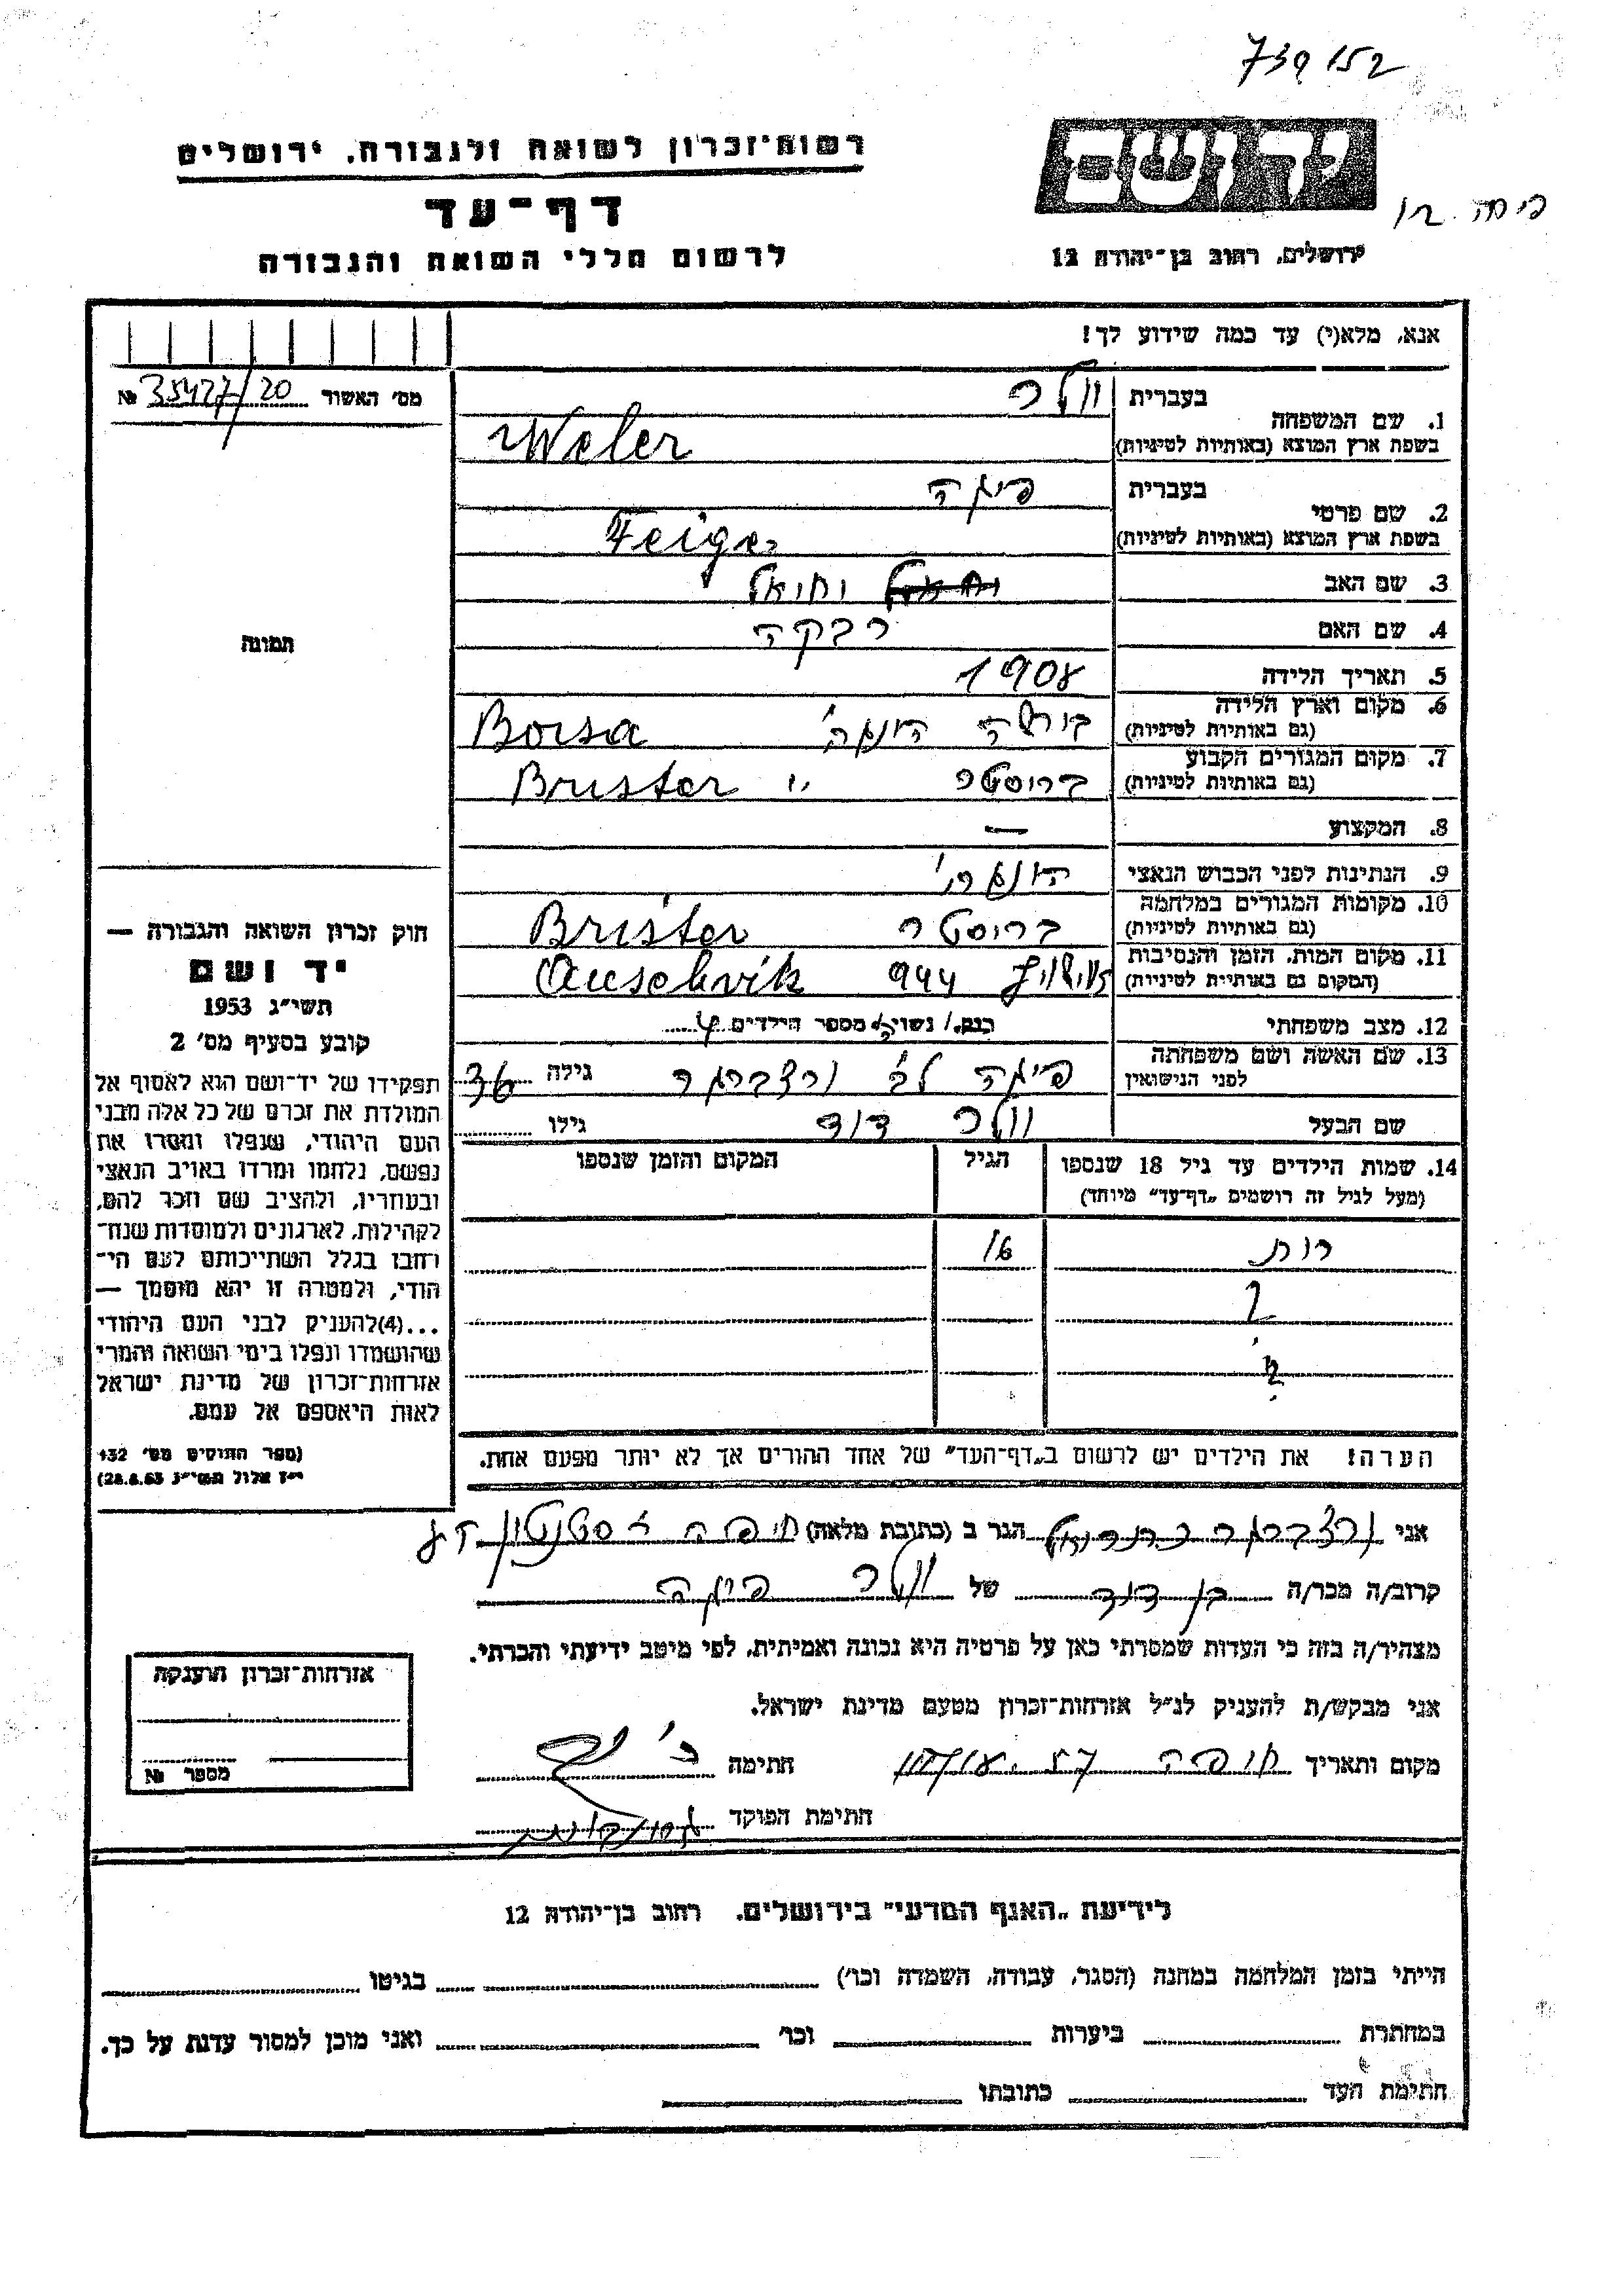 739152
יד ושם
רשות־זכרון לשואה ולגבורה, ירושלים
דף־עד
לרשום חללי השואה והגבורה
ירושלים, רחוב בן־יהודה 12
אנא, מלא(י) עד כמה שידוע לך!
מס' האשור 35427/20 №
1. שם המשפחה
בעברית ולר
בשפת ארץ המוצא (באותיות לטיניות) Weler
2. שם פרטי
בעברית פיגה
בשפת ארץ המוצא (באותיות לטיניות) Feige
3. שם האב
4. שם האם רבקה
5. תאריך הלידה 1908
6. מקום וארץ הלידה
(גם באותיות לטיניות) Borsa
7. מקום המגורים הקבוע
(גם באותיות לטיניות) ברוסטר " Bruster
8. המקצוע —
9. הנתינות לפני הכבוש הנאצי
10. מקומות המגורים במלחמה
(גם באותיות לטיניות) ברוסטר Brister
11. מקום המות, הזמן והנסיבות
(המקום גם באותיות לטיניות) 944 Auschvik
12. מצב משפחתי רווק/ נשוי/ה מספר הילדים 4
13. שם האשה ושם משפחתה
לפני הנישואין פיגה לב' ורצברגר גילה 36
שם הבעל ולר דוד גילו
14. שמות הילדים עד גיל 18 שנספו
(מעל לגיל זה רושמים "דף־עד" מיוחד)
הגיל
המקום והזמן שנספו
רות 16
?
?
הערה! את הילדים יש לרשום ב"דף־העד" של אחד ההורים אך לא יותר מפעם אחת.
תמונה
חוק זכרון השואה והגבורה —
יד ושם
תשי"ג 1953
קובע בסעיף מס' 2
תפקידו של יד־ושם הוא לאסוף אל
המולדת את זכרם של כל אלה מבני
העם היהודי, שנפלו ומסרו את
נפשם, נלחמו ומרדו באויב הנאצי
ובעוזריו, ולהציב שם וזכר להם,
לקהילות, לארגונים ולמוסדות שנח־
רחבו בגלל השתייכותם לעם הי־
הודי, ולמטרה זו יהא מוסמך —
...(4)להעניק לבני העם היהודי
שהושמדו ונפלו בימי השואה והמרי
אזרחות־זכרון של מדינת ישראל
לאות היאספם אל עמם.
(ספר החוקים מס' 132
י"ז אלול תשי"ג 28.8.53)
אני ורצברגר הגר ב (כתובת מלאה) חיפה
קרוב/ה מכר/ה בן דוד של ולר פיגה
מצהיר/ה בזה כי העדות שמסרתי כאן על פרטיה היא נכונה ואמיתית, לפי מיטב ידיעתי והכרתי.
אני מבקש/ת להעניק לנ"ל אזרחות־זכרון מטעם מדינת ישראל.
מקום ותאריך חיפה חתימה
חתימת הפוקד
אזרחות־זכרון הוענקה
מספר №
לידיעת "האגף המדעי" בירושלים, רחוב בן־יהודה 12
הייתי בזמן המלחמה במחנה (הסגר, עבודה, השמדה וכו') בגיטו
במחתרת ביערות וכו' ואני מוכן למסור עדות על כך.
חתימת העד כתובתו